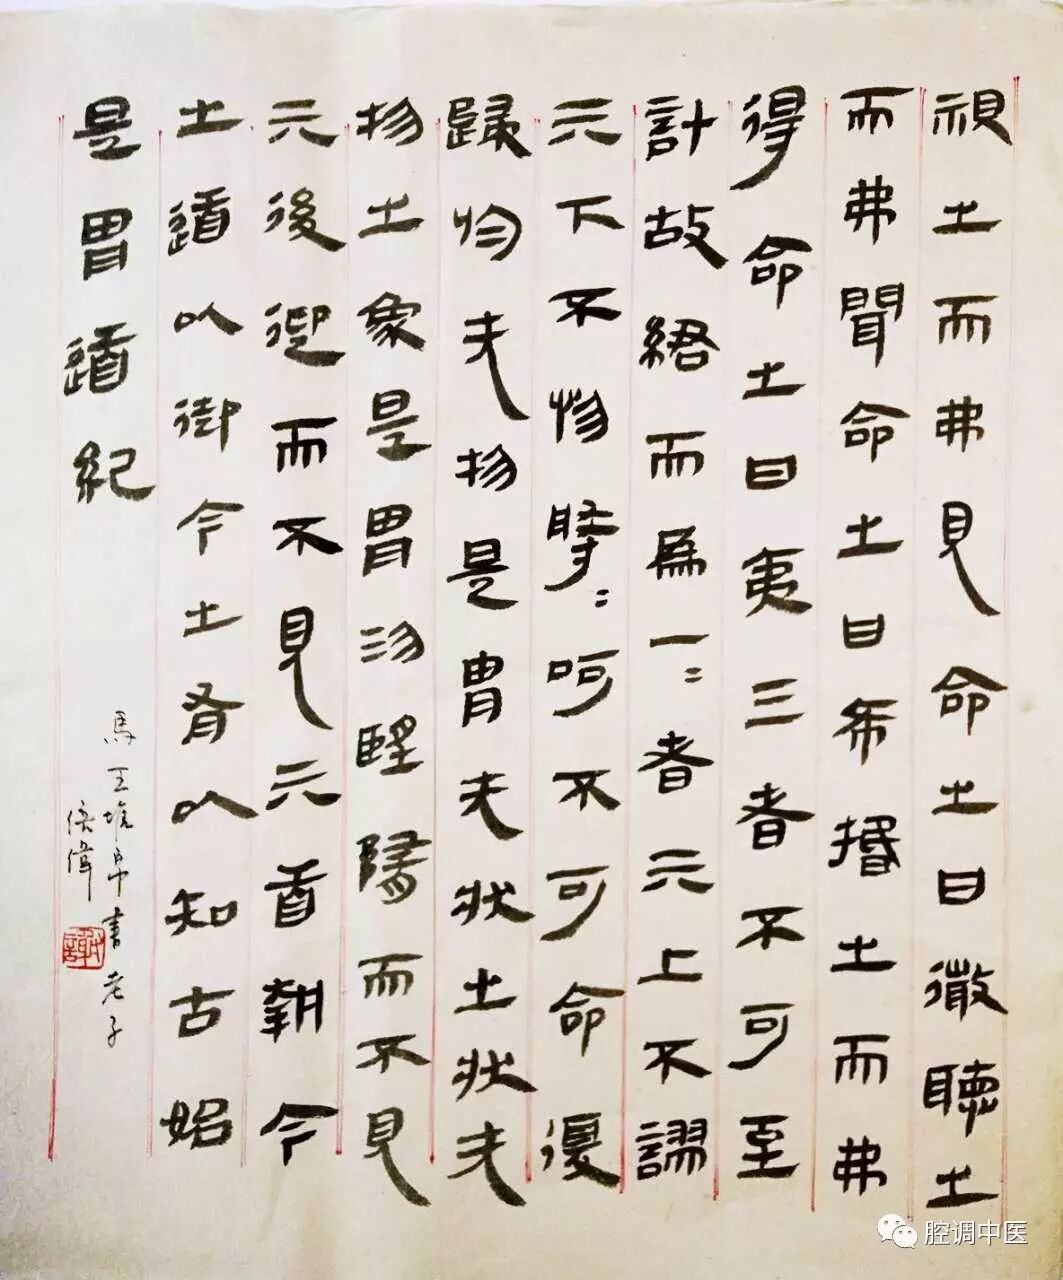 視之而弗見命之曰微聽之
而弗聞命之曰希捪之而弗
得命之曰夷三者不可至
計故而爲一=者亓上不謬
亓下不惚尋=呵不可命復
歸於无物是胃无狀之狀无
物之象是胃沕朢隋而不見
亓後迎而不見亓首執今
之道以御今之有以知古始
是胃道紀
馬王堆帛書老子
偉
腔调中医